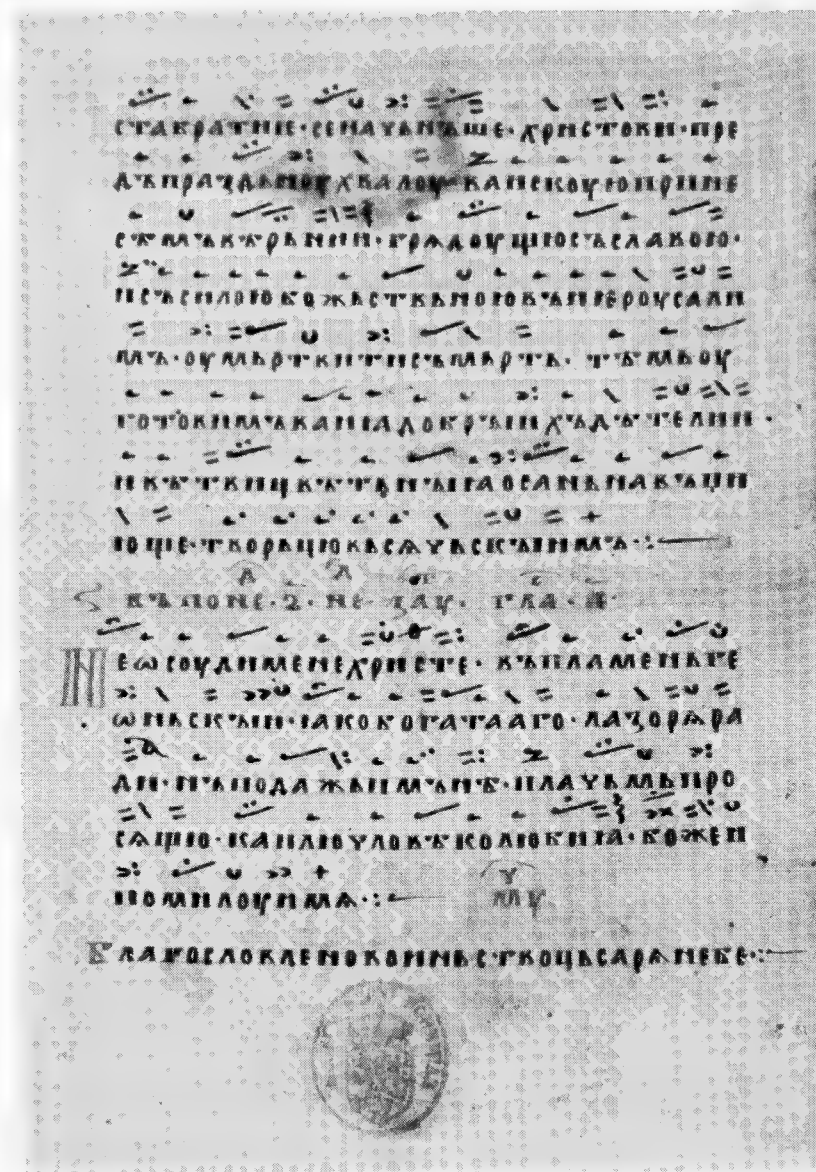 ста братиѥ · се начьнъше · христовы · пре
дъпраздьноу хвалоу · ваискоую прине
сѣмъ вѣрьнии · грѧдоущю съ славою ·
и съ силою божьствьною въ иероусали
мъ · оумьртвити съмьрть · тѣмь оу
готовимъ ваиꙗ добрыихъ дѣтелии ·
и вѣтвии цвѣтьныꙗ осанъна въпи
юще · творьцю вьсѧчьскыимъ ·:
въ поне · не · гла · а ·
Не ѡсоуди мене христе · въ пламень ге
ѡньскыи · ꙗко богатааго · лазорѧ ра
ди · нъ подажь · плачьмь про
сѧщю · каплю чловѣколюбиꙗ · боже и
помилоуи мѧ ·: му
Благословлено воиньство цьсарѧ небе ·: